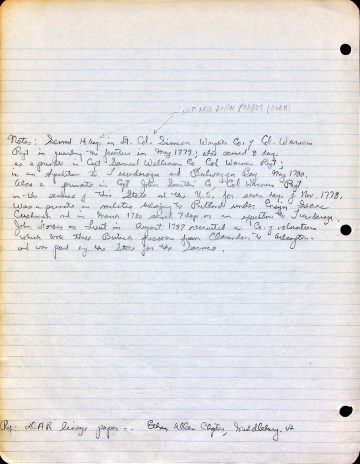 JOHN FORBES
Notes: Served 4 days in Lt. Col. Simeon Wright Co. & Col. Warner
Regt in guarding the frontier in May 1779; also served 8 days
as a private in Capt Samuel Williams Co Col Warren Regt;
in an expedition to Ticonderoga and Bulwagga Bay May 1780.
Also a private in Cpt John Smith's Co Col Warner Regt
in the service of this State and the U.S. for seven days of Nov. 1778,
Was a private in militia belonging to Rutland under Ensign Isaac
Cushman and in March 1780 served 7 days on an expedition to Ticonderoga.
John Forbes as Lieut in August 1787 recruited a Co. of volunteers
which took three British prisoners from Clarendon to Arlington.
and was paid by the State for the Service.
Ref: DAR lineage paper -- Ethan Allen Chapter, Middlebury, Vt